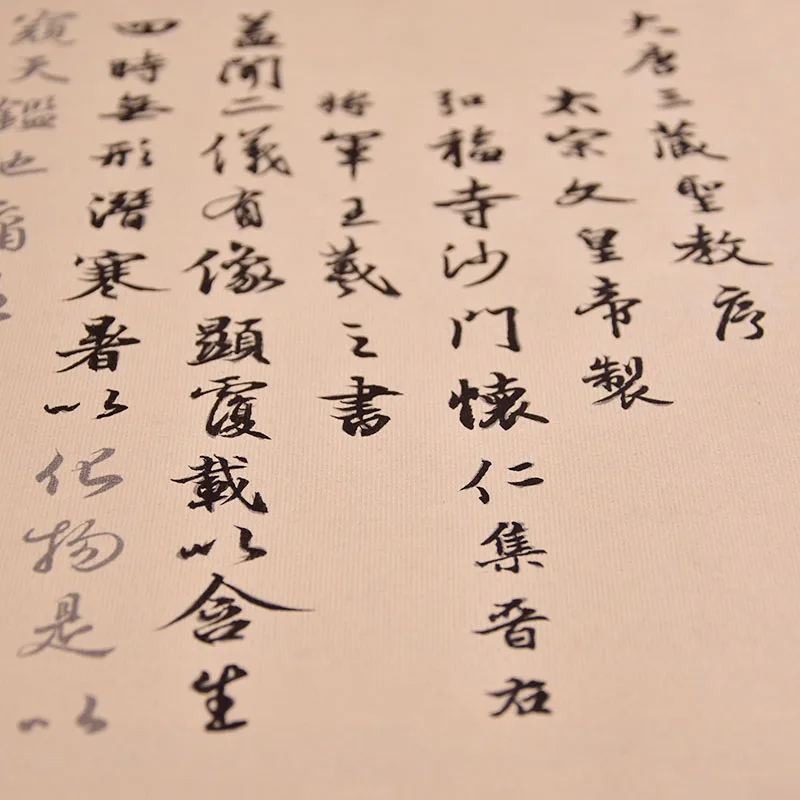 大唐三藏聖教序
太宗文皇帝製
弘福寺沙門懷仁集晉右
将軍王羲之書
蓋聞二儀有像顯覆載以含生
四時無形潛寒暑以化物是以
窺天鑑也庸